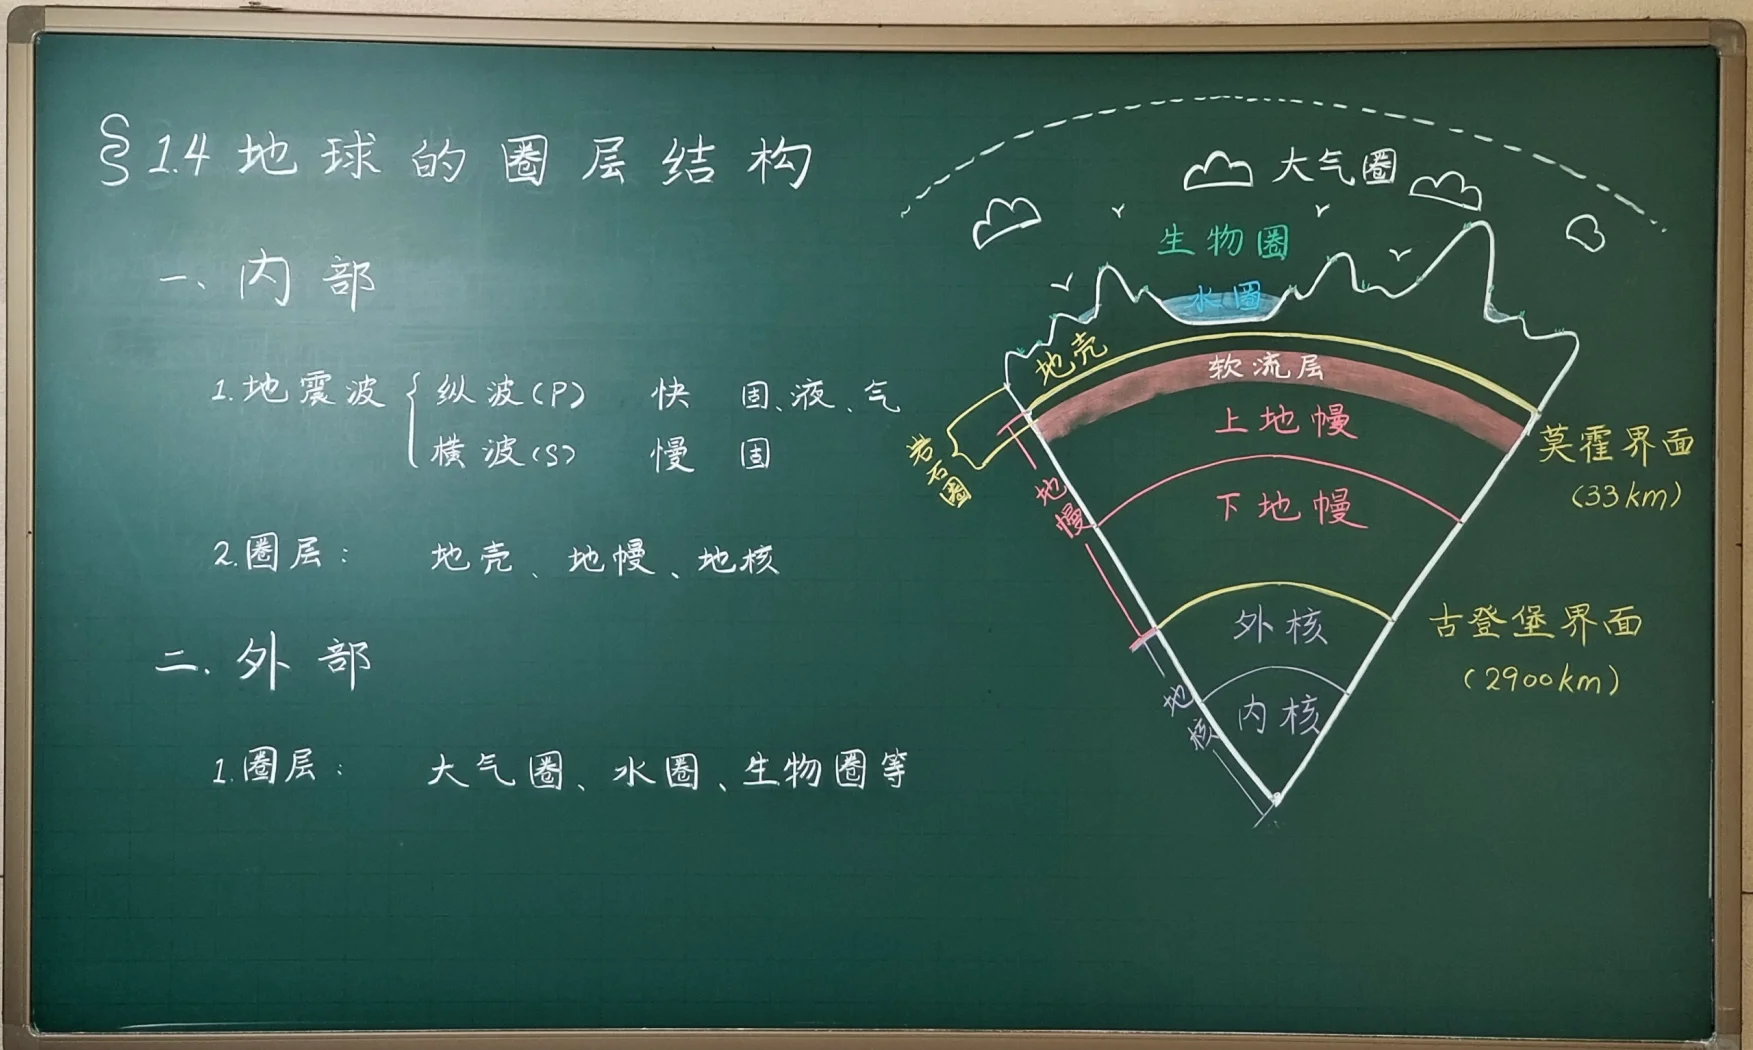 §1.4 地球的圈层结构
一、内部
1.地震波 { 纵波(P) 快 固、液、气
横波(S) 慢 固
2.圈层: 地壳、地幔、地核
二.外部
1.圈层: 大气圈、水圈、生物圈等
大气圈
生物圈
水圈
地壳
软流层
上地幔
下地幔
外核
内核
岩石圈
地幔
地核
莫霍界面
(33km)
古登堡界面
(2900km)